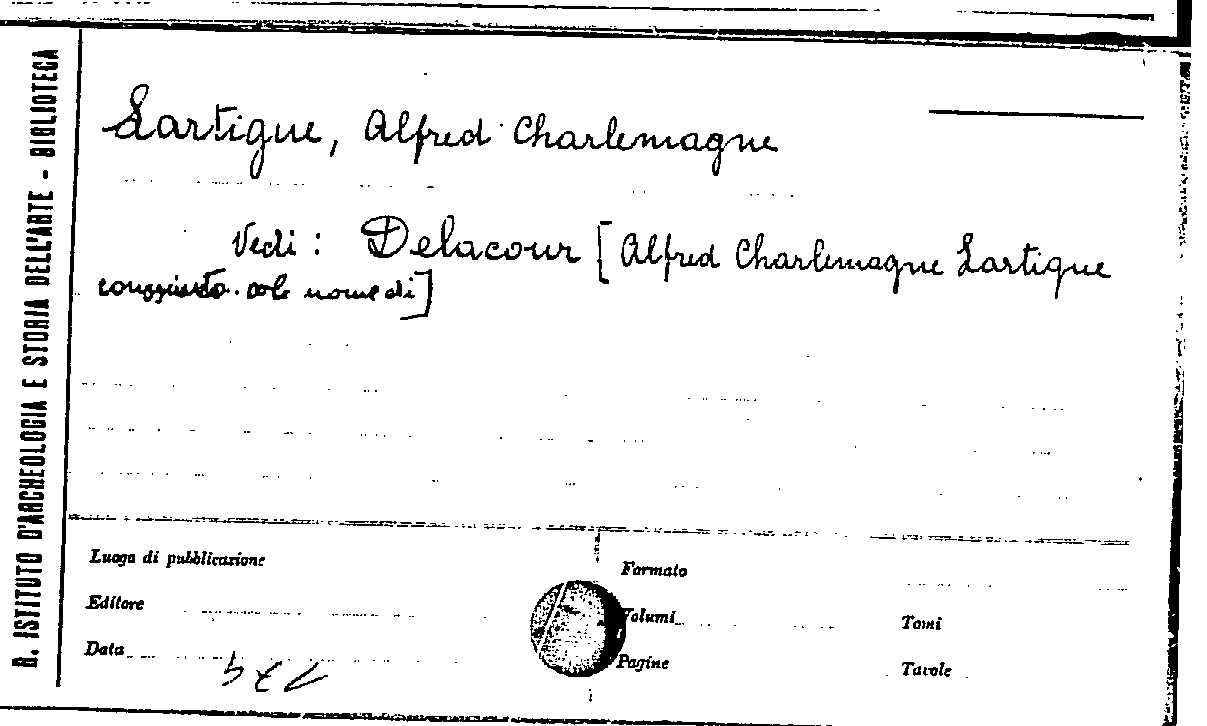 R. ISTITUTO D'ARCHEOLOGIA E STORIA DELL'ARTE - BIBLIOTECA
Lartigue, Alfred Charlemagne
Vedi : Delacour [Alfred Charlemagne Lartigue
nome di]
Luogo di pubblicazione
Formato
Editore
Volumi
Tomi
Data
Pagine
Tavole